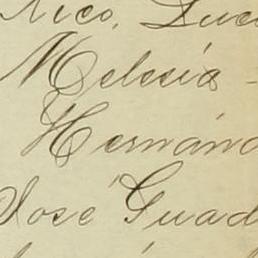 Nico, Luci
Melesia -
Hernánd
José Guad